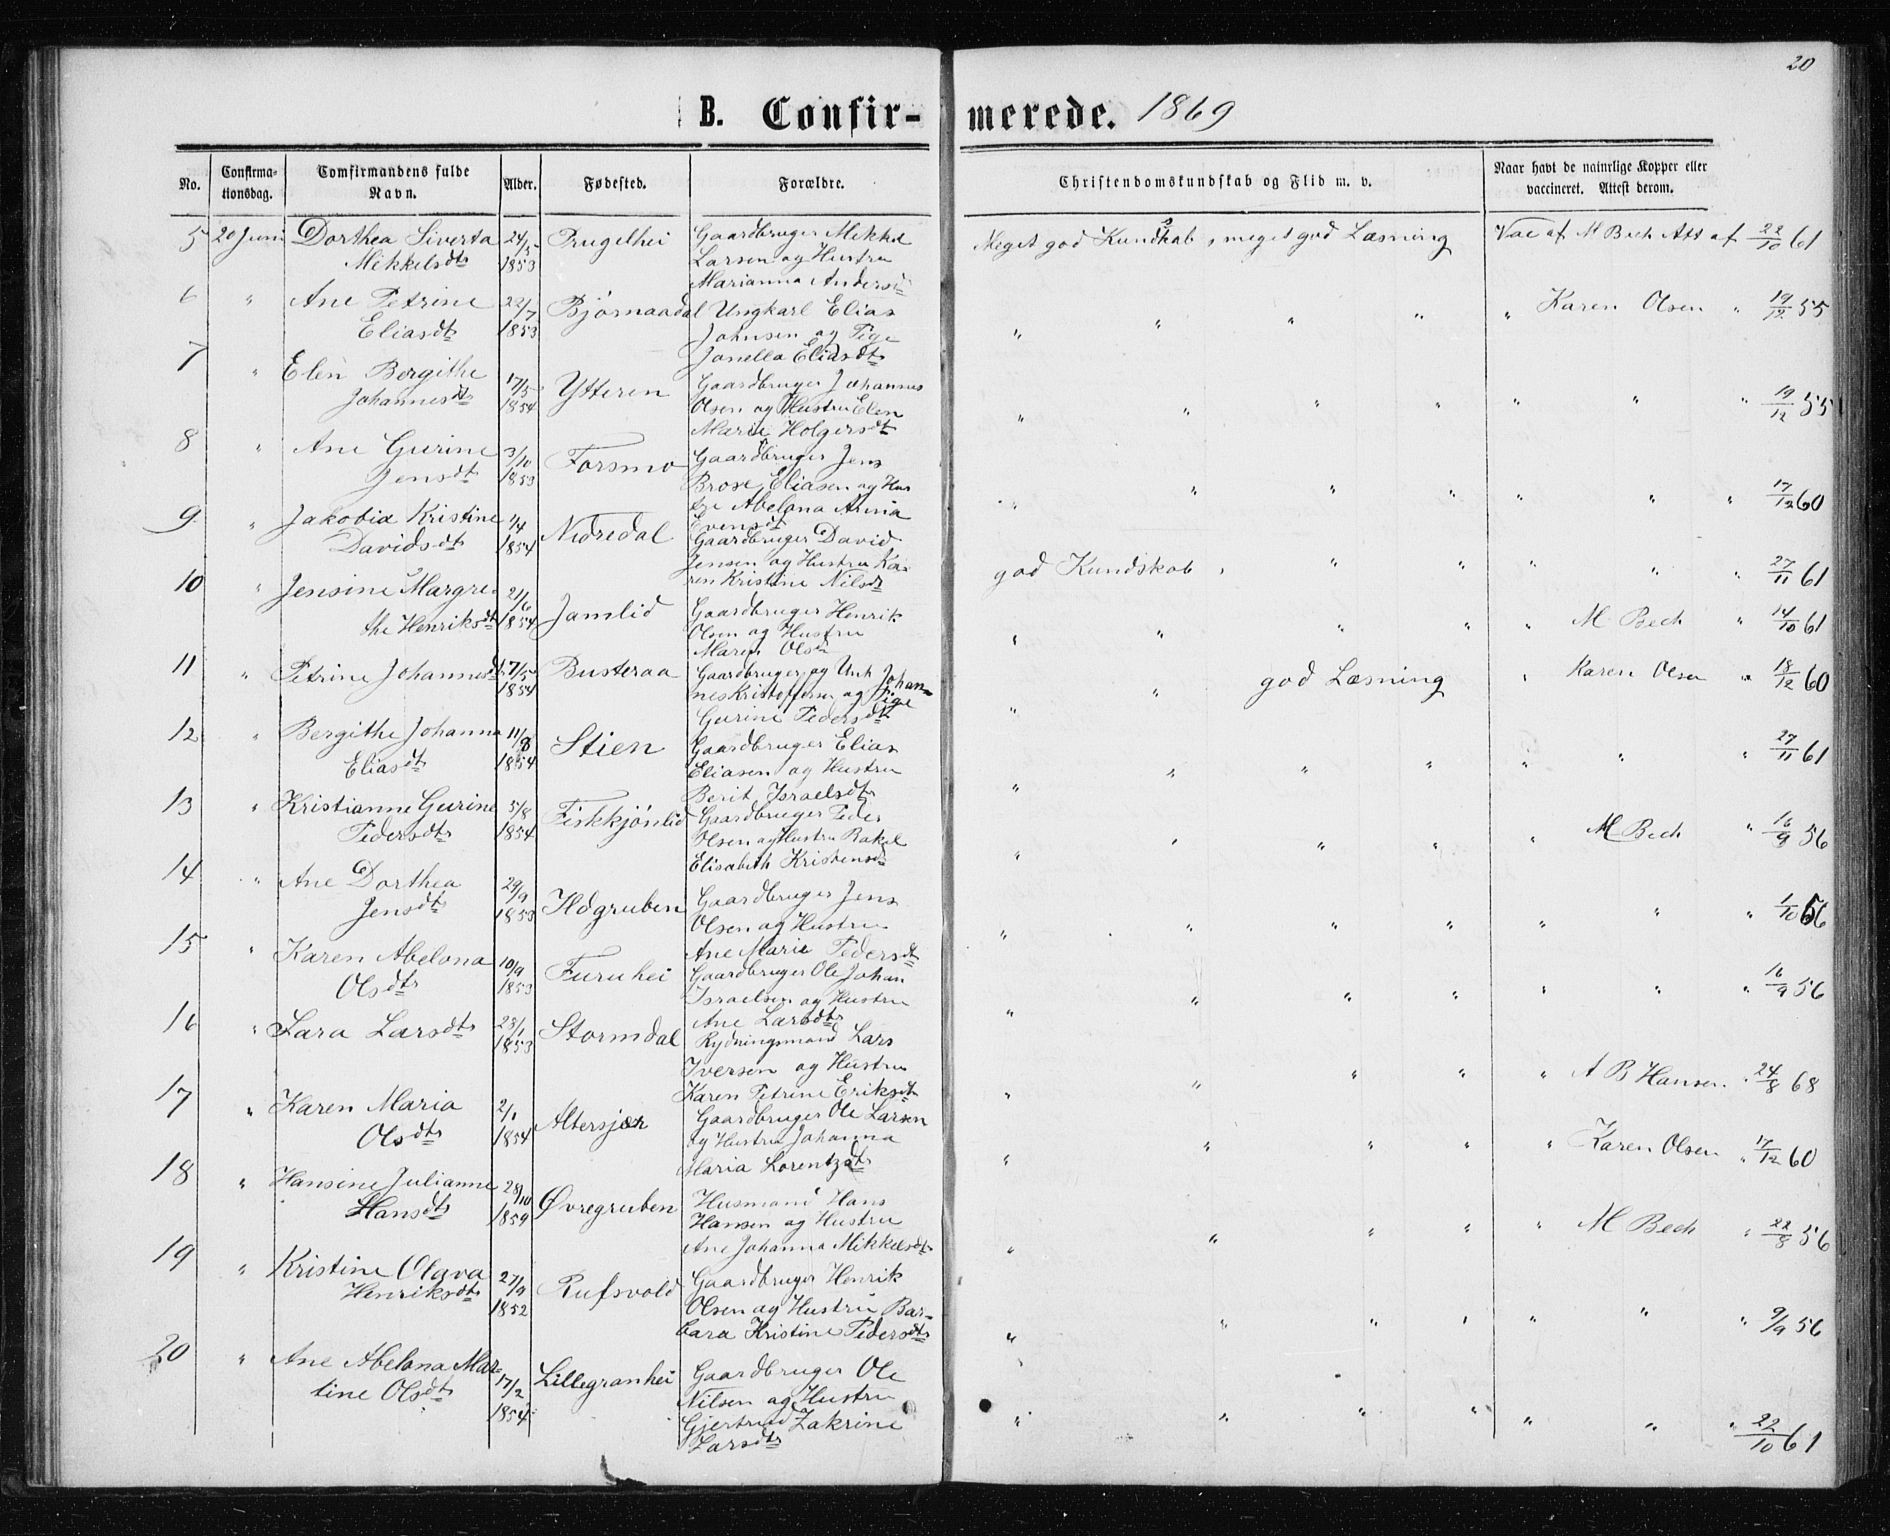 20
B. Confir- merede. 1869
No. Confirmationsdag. Comfirmandens fulde Navn. Alder. Fødested. Forældre. Christendomskundskab og Flid m. v. Naar havt de naturlige Kopper eller vaccineret. Attest derom.
5 20 Juni Dorthea Siverta 24/5 Prugelhei Gaardbruger Mikkel Meget god Kundskab, meget god Læsning Vac af M Bech Att af 22/10 61
Mikkelsdtr 1853 Larsen og Hustru
Marianna Andersd
6 " Ane Petrine 22/7 Bjørnaadal Ungkarl Elias " " " " " Karen Olsen " 19/12 55
Eliasdtr 1853 Johnsen og Pige
Janella Eliasdtr
7 " Elen Bergithe 17/5 Ytteren Gaardbruger Johannes " " " " " " " 19/12 55
Johannesdtr 1854 Olsen og Hustru Elen
Maria Holgersdtr
8 " Ane Gurine 3/10 Forsmo Gaardbruger Jens " " " " " " " 17/12 60
Jensdtr 1853 Brose Eliasen og Hus
tru Abelona Anna
Evensdtr
9 " Jakobia Kristine 1/4 Nedredal Gaardbruger David god Kundskab, " " " " " 27/11 61
Davidsdtr 1854 Jensen og Hustru Ka-
ren Kristine Nilsdtr
10 " Jensine Margre- 21/6 Jamlid Gaardbruger Henrik " " " " " M Bech " 14/10 61
the Henriksdtr 1854 Olsen og Hustru
Maren Olsdtr
11 " Petrine Johannesdtr 7/5 Busteraa Gaardbruger og Unk Johan- " " god Læsning " Karen Olsen " 18/12 60
1854 nes Kristoffersen og Pige
Gurine Pedersdtr
12 " Bergithe Johanna 11/8 Stien Gaardbruger Elias " " " " " " " 27/11 61
Eliasdtr 1854 Eliasen og Hustru
Berit Israelsdtr
13 " Kristianne Gurine 5/8 Fiskkjønlid Gaardbruger Peder " " " " " M Bech " 16/9 56
Pedersdtr 1854 Olsen og Hustru Rakel
Elisabeth Kristensd
14 " Ane Dorthea 29/9 Høgruben Gaardbruger Jens " " " " " " " 1/10 56
Jensdtr 1853 Olsen og Hustru
Ane Maria Pedersdtr
15 " Karen Abelona 10/9 Furuhei Gaardbruger Ole Johan " " " " " " " 16/9 56
Olsdtr 1853 Israelsen og Hustru
Ane Larsdtr
16 " Lara Larsdtr 23/1 Stormdal Rydningsmand Lars " " " " " A B Hansen " 24/8 68
1853 Iversen og Hustru
Karen Petrine Eriksdtr
17 " Karen Maria 2/1 Altersjøen Gaardbruger Ole Larsen " " " " " Karen Olsen " 17/12 60
Olsdtr 1854 og Hustru Johanna
Maria Lorentzdtr
18 " Hansine Julianne 28/10 Øvregruben Husmand Hans " " " " " M Bech " 22/8 56
Hansdtr 1859 Hansen og Hustru
Ane Johanna Mikkelsdtr
19 " Kristine Olava 27/9 Rufsvold Gaardbruger Henrik " " " " " " " 9/9 56
Henriksdtr 1852 Olsen og Hustru Bar-
bara Kristine Pedersdtr
20 " Ane Abelona Mar- 17/2 Lillegranhei Gaardbruger Ole " " " " " " " 22/10 61
tine Olsdtr 1854 Nilsen og Hustru
Gjertrud Zakrine
Larsdtr